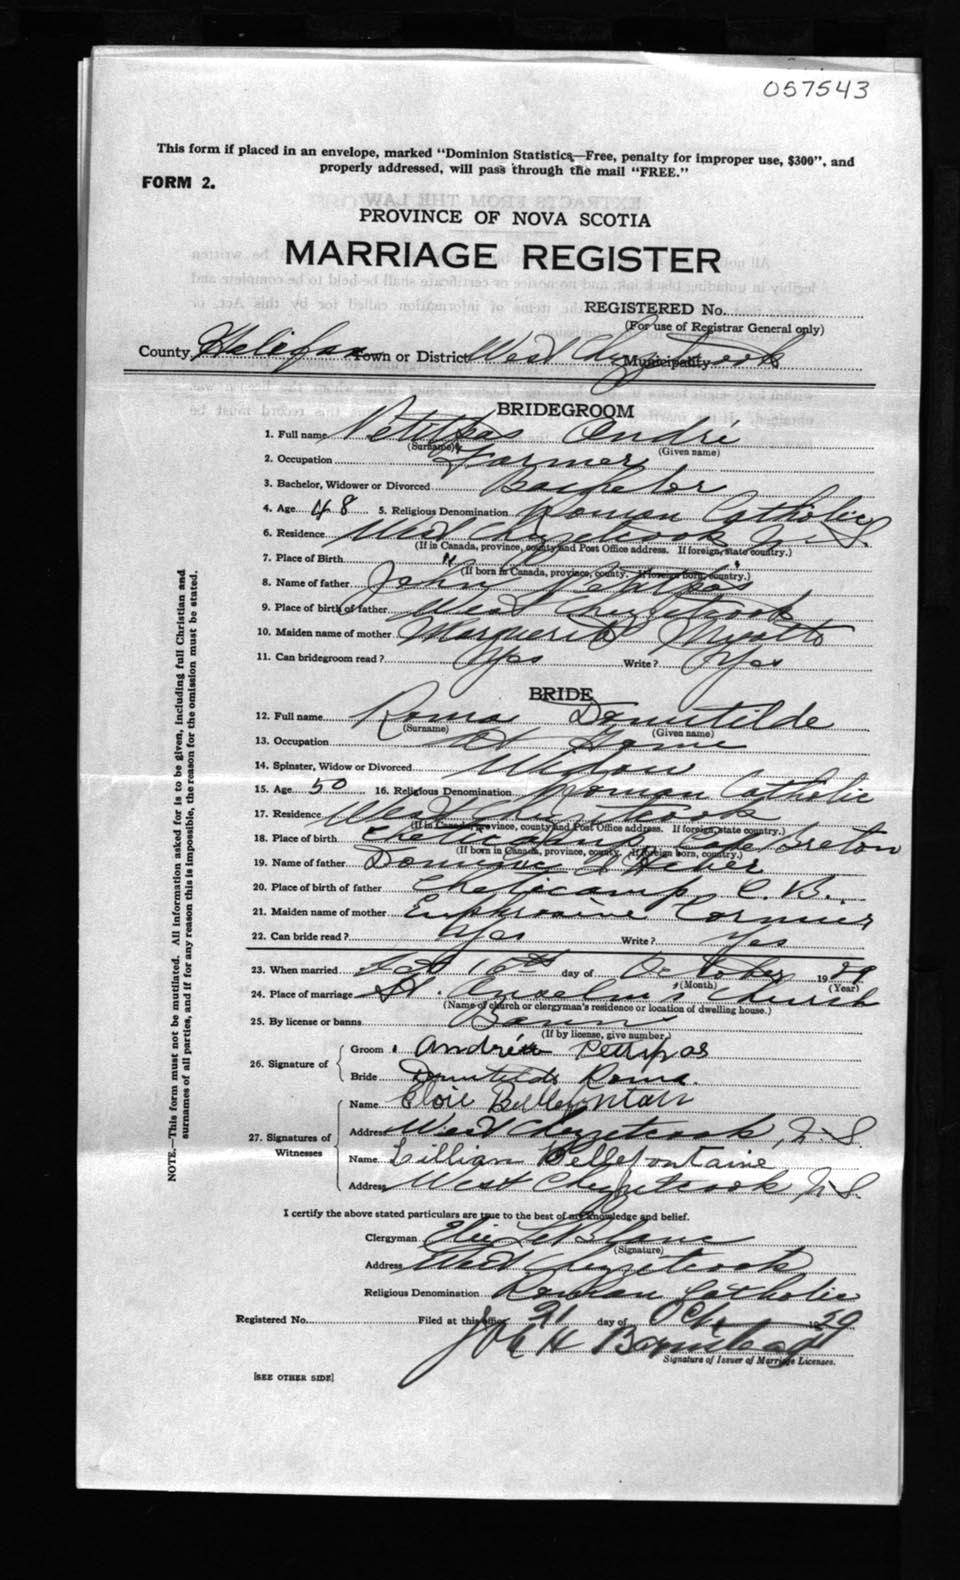 057543
This form if placed in an envelope, marked "Dominion Statistics—Free, penalty for improper use, $300", and
properly addressed, will pass through the mail "FREE."
FORM 2.
PROVINCE OF NOVA SCOTIA
MARRIAGE REGISTER
REGISTERED No.
(For use of Registrar General only)
County Halifax Town or District West Chezzetcook Municipality
BRIDEGROOM
1. Full name Petitpas André
(Surname) (Given name)
2. Occupation Farmer
3. Bachelor, Widower or Divorced Bachelor
4. Age 48 5. Religious Denomination Roman Catholic
6. Residence West Chezzetcook N.S.
(If in Canada, province, county and Post Office address. If foreign, state country.)
7. Place of Birth " "
(If born in Canada, province, county. If foreign born, country.)
8. Name of father John Petitpas
9. Place of birth of father West Chezzetcook
10. Maiden name of mother Marguerite Myatte
11. Can bridegroom read? Yes Write? Yes
BRIDE
12. Full name Roma Domitilde
(Surname) (Given name)
13. Occupation At Home
14. Spinster, Widow or Divorced Widow
15. Age 50 16. Religious Denomination Roman Catholic
17. Residence West Chezzetcook
(If in Canada, province, county and Post Office address. If foreign, state country.)
18. Place of birth Cheticamp Cape Breton
(If born in Canada, province, county. If foreign born, country.)
19. Name of father
20. Place of birth of father Cheticamp C. B.
21. Maiden name of mother Euphrosine Cormier
22. Can bride read? Yes Write? Yes
23. When married 15th day of October 1929
(Month) (Year)
24. Place of marriage St. Anselm's Church
(Name of church or clergyman's residence or location of dwelling house.)
25. By license or banns Banns
(If by license, give number.)
26. Signature of
Groom André Petitpas
Bride Domitilde Roma.
27. Signatures of Witnesses
Name Eloie Bellefontain
Address West Chezzetcook, N.S.
Name Lillian Bellefontaine
Address West Chezzetcook N.S.
I certify the above stated particulars are true to the best of my knowledge and belief.
Clergyman Elie LeBlanc
(Signature)
Address West Chezzetcook
Religious Denomination Roman Catholic
Registered No. Filed at this office 21 day of Oct. 1929
Signature of Issuer of Marriage Licenses.
[SEE OTHER SIDE]
NOTE.—This form must not be mutilated. All information asked for is to be given, including full Christian and
surnames of all parties, and if for any reason this is impossible, the reason for the omission must be stated.